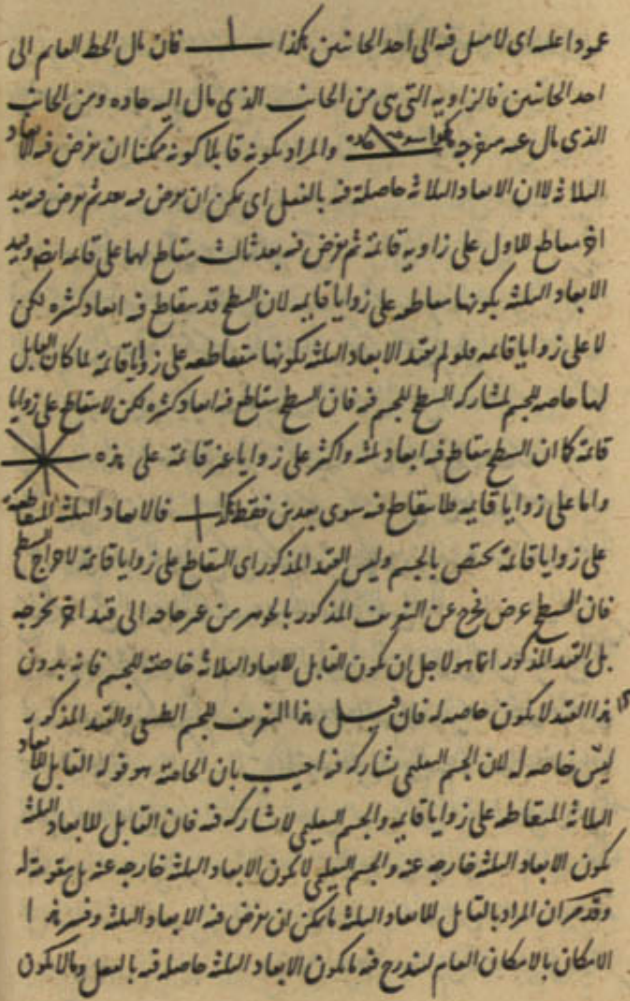 عمودا عليه اى لا ميل فيه الى احد الجانبين هكذا فان مال الخط القايم الى
احد الجانبين فالزاويه التى هى من الجانب الذى مال اليه حاده ومن الجانب
الذى مال عنه منفرجه هكذا منفرجه حاده والمراد بكونه قابلا كونه ممكنا ان يفرض فيه الابعاد
الثلاثه لا ان الابعاد الثلاثه حاصلة فيه بالفعل اى يمكن ان يفرض فيه بعد ثم يفرض فيه بعد
اخر مقاطع للاول على زاويه قائمة ثم يفرض فيه بعد ثالث مقاطع لهما على قائمه ايضا وقيد
الابعاد الثلثه بكونها متقاطعه على زوايا قايمه لان السطح قد يتقاطع فيه ابعاد كثيره لكن
لا على زوايا قائمه فلو لم يقيد الابعاد الثلثه بكونها متقاطعه على زوايا قائمة لما كان القابل
لها خاصه للجسم لمشاركه السطح للجسم فيه فان السطح يتقاطع فيه ابعاد كثيره لكن لا يتقاطع على زوايا
قائمة كما ان السطح يتقاطع فيه ابعاد ثلثه واكثر على زوايا غير قائمة على هذه
واما على زوايا قايمه فلا يتقاطع فيه سوى بعدين فقط هكذا فالابعاد الثلثه المتقاطعة
على زوايا قائمة يختص بالجسم وليس القيد المذكور اى التقاطع على زوايا قائمة لاخراج السطح
فان السطح عرض يخرج عن التعريف المذكور بالجوهر من غير حاجه الى قيد اخر يخرجه
بل القيد المذكور انما هو لاجل ان يكون القابل للابعاد الثلاثه خاصة للجسم فانه بدون
هذا القيد لا يكون خاصه له فان قيل هذا التعريف للجسم الطبيعى والقيد المذكور
ليس خاصه له لان الجسم التعليمى يشاركه فيه اجيب بان الخاصة هو قوله القابل للابعاد
الثلاثه المتقاطعه على زوايا قايمه والجسم التعليمى لا يشاركه فيه فان القابل للابعاد الثلثه
يكون الابعاد الثلثه خارجه عنه والجسم التعليمى لا يكون الابعاد الثلثه خارجه عنه بل مقومة له
وقد مر ان المراد بالقابل للابعاد الثلثه ما يمكن ان يفرض فيه الابعاد الثلثه وفسر هذا
الامكان بالامكان العام ليندرج فيه ما يكون الابعاد الثلثه حاصله فيه بالفعل وما لا يكون